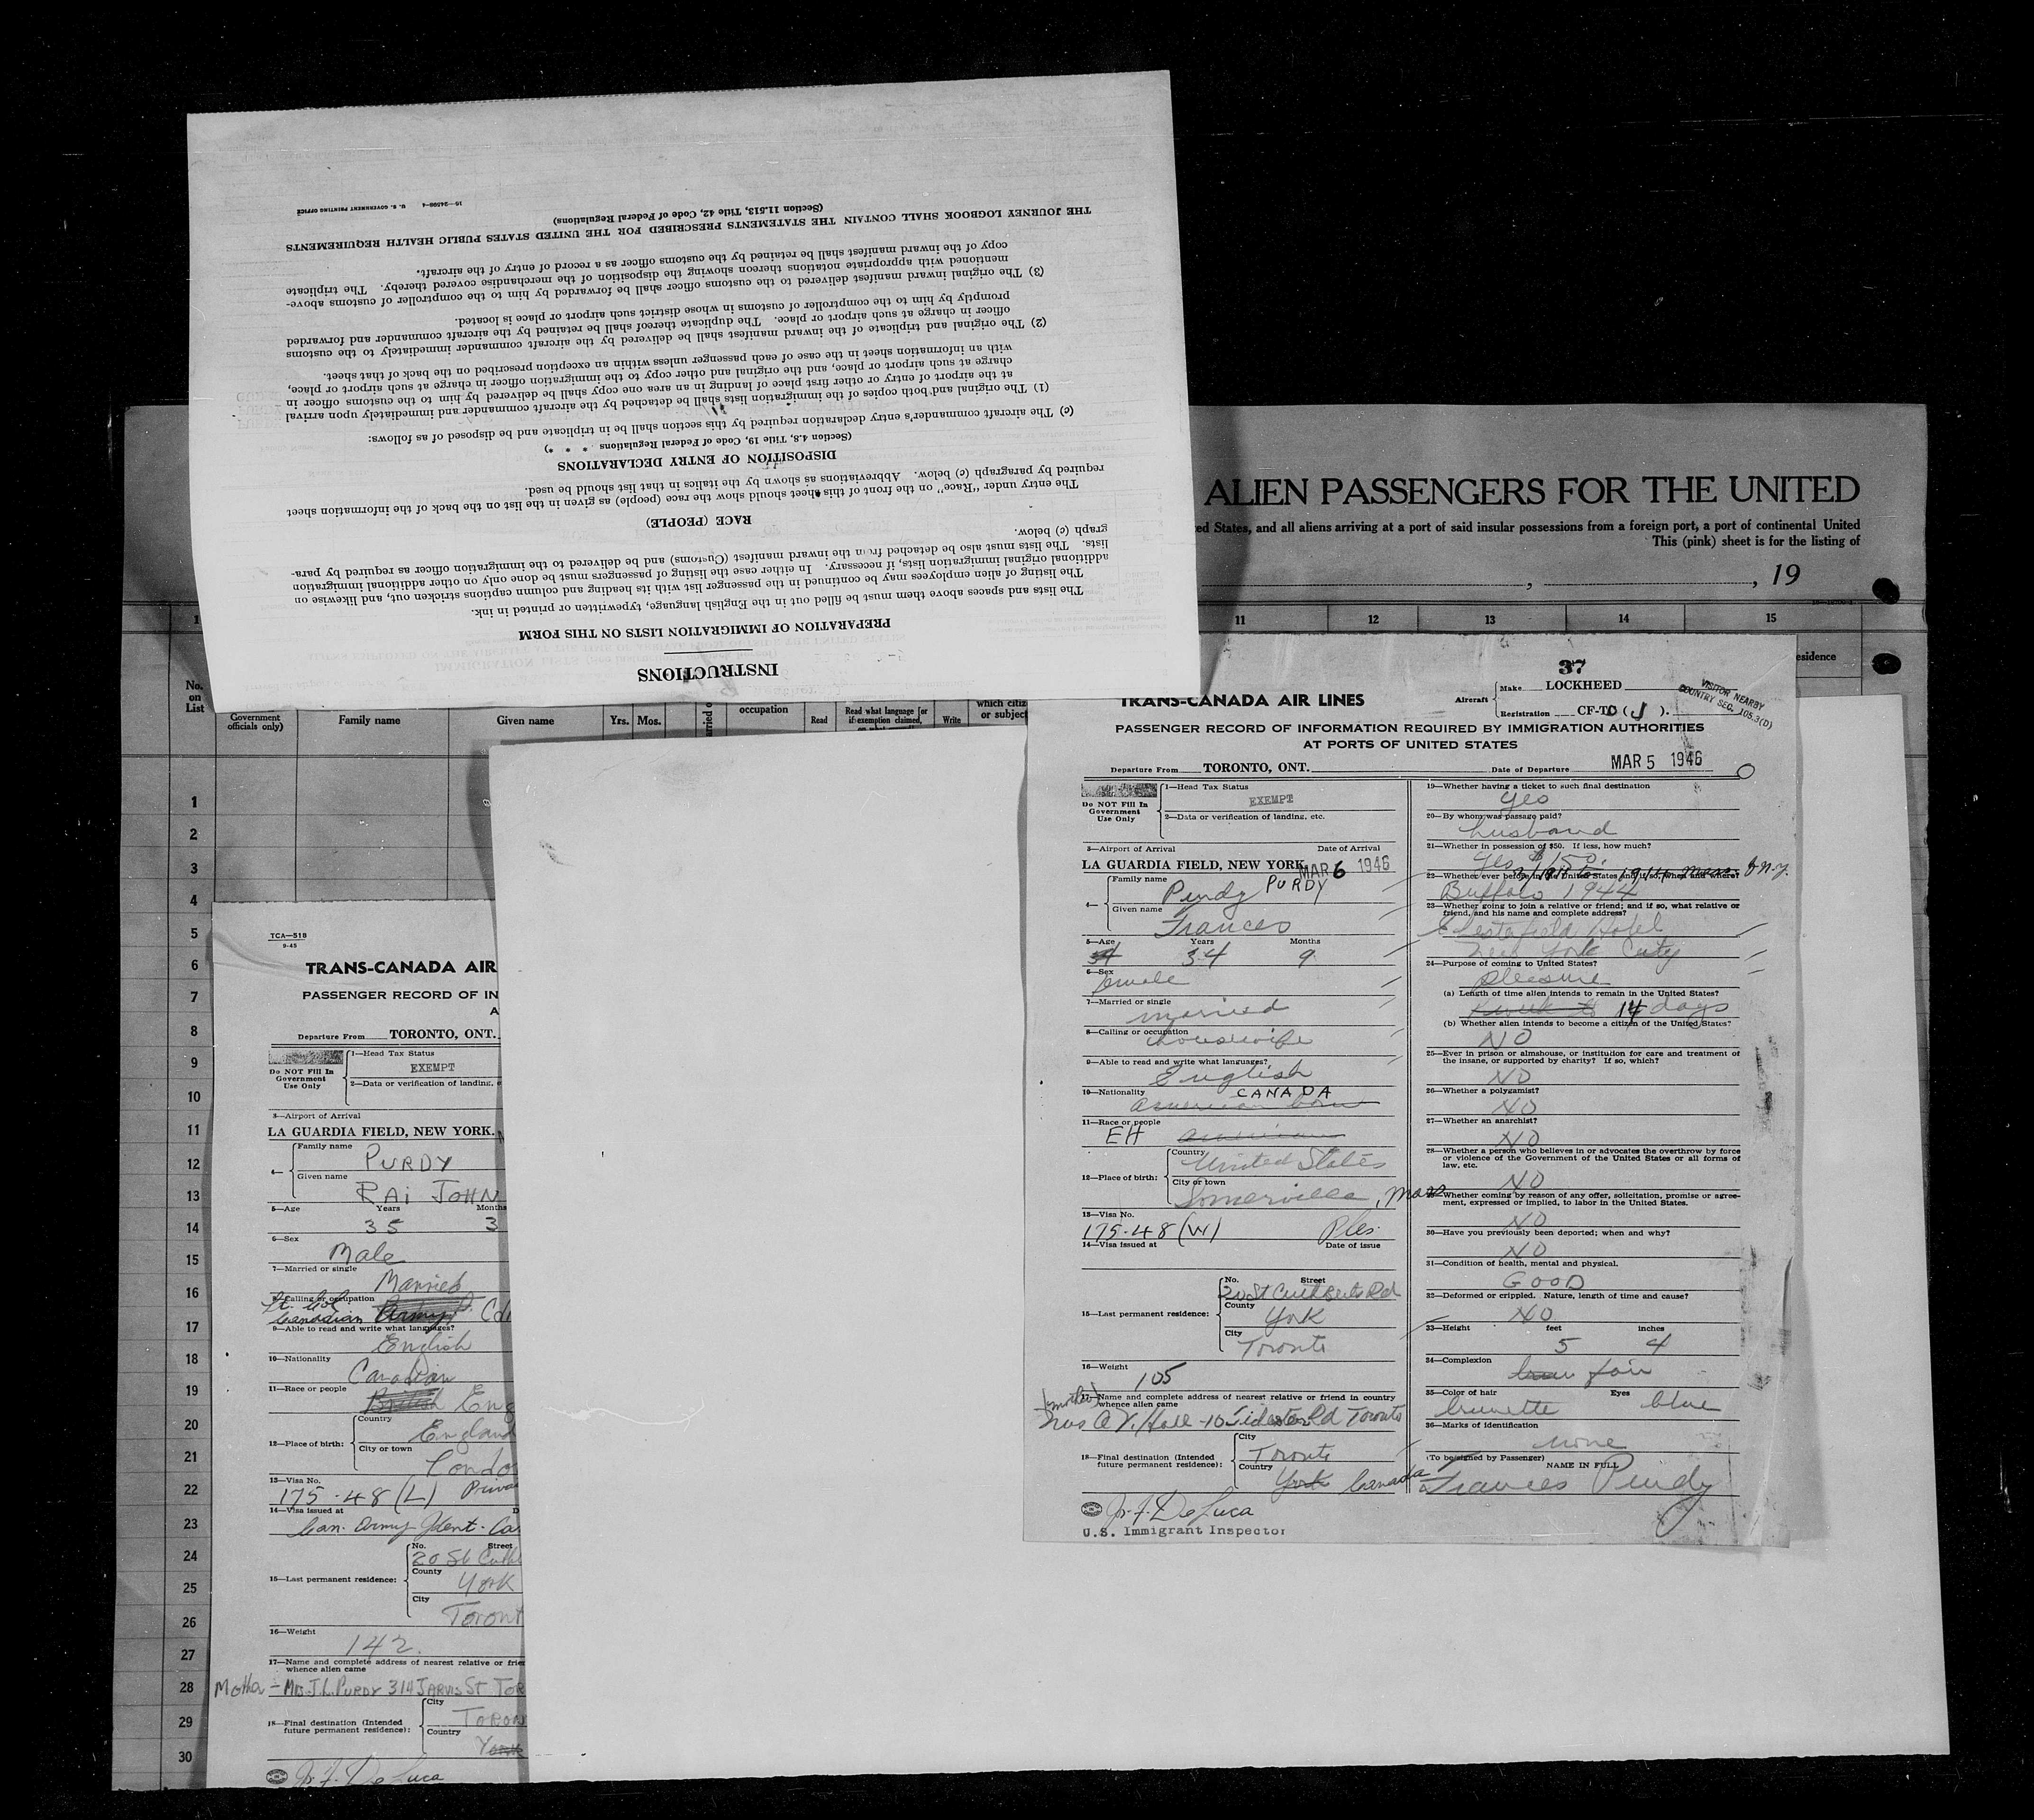 INSTRUCTIONS
PREPARATION OF IMMIGRATION LISTS ON THIS FORM
The lists and spaces above them must be filled out in the English language, typewritten or printed in ink.
The listing of alien employees may be continued in the passenger list with its heading and column captions stricken out, and likewise on
additional original immigration lists, if necessary. In either case the listing of passengers must be done only on other additional immigration
lists. The lists must also be detached from the inward manifest (Customs) and be delivered to the immigration officer as required by para-
graph (c) below.
RACE (PEOPLE)
The entry under "Race" on the front of this sheet should show the race (people) as given in the list on the back of the information sheet
required by paragraph (c) below. Abbreviations as shown by the italics in that list should be used.
DISPOSITION OF ENTRY DECLARATIONS
(Section 4.8, Title 19, Code of Federal Regulations * * *)
(c) The aircraft commander's entry declaration required by this section shall be in triplicate and be disposed of as follows:
(1) The original and both copies of the immigration lists shall be detached by the aircraft commander and immediately upon arrival
at the airport of entry or other first place of landing in an area one copy shall be delivered by him to the customs officer in
charge at such airport or place, and the original and other copy to the immigration officer in charge at such airport or place,
with an information sheet in the case of each passenger unless within an exception prescribed on the back of that sheet.
(2) The original and triplicate of the inward manifest shall be delivered by the aircraft commander immediately to the customs
officer in charge at such airport or place. The duplicate thereof shall be retained by the aircraft commander and forwarded
promptly by him to the comptroller of customs in whose district such airport or place is located.
(3) The original inward manifest delivered to the customs officer shall be forwarded by him to the comptroller of customs above-
mentioned with appropriate notations thereon showing the disposition of the merchandise covered thereby. The triplicate
copy of the inward manifest shall be retained by the customs officer as a record of entry of the aircraft.
THE JOURNEY LOGBOOK SHALL CONTAIN THE STATEMENTS PRESCRIBED FOR THE UNITED STATES PUBLIC HEALTH REQUIREMENTS
(Section 11.513, Title 42, Code of Federal Regulations)
16—24598-4 U. S. GOVERNMENT PRINTING OFFICE
ALIEN PASSENGERS FOR THE UNITED
ed States, and all aliens arriving at a port of said insular possessions from a foreign port, a port of continental United
This (pink) sheet is for the listing of
, , 19
11 12 13 14 15
esidence
No. on List
Government officials only)
Family name
Given name
Yrs. Mos.
occupation
Read
Read what language [or if exemption claimed,
Write
which citiz
or subject
1
2
3
4
5
6
7
8
9
10
11
12
13
14
15
16
17
18
19
20
21
22
23
24
25
26
27
28
29
30
TCA—518
9-45
TRANS-CANADA AIR
PASSENGER RECORD OF IN
A
Departure From TORONTO, ONT.
Do NOT Fill In Government Use Only
1—Head Tax Status
EXEMPT
2—Data or verification of landing, e
3—Airport of Arrival
LA GUARDIA FIELD, NEW YORK.
4—
Family name
PURDY
Given name
RAI JOHN
5—Age Years Months
35 3
6—Sex
Male
7—Married or single
Married
8—Calling or occupation
Lt. Col
Canadian Army
9—Able to read and write what languages?
English
10—Nationality
Canadian
11—Race or people
British Eng
12—Place of birth:
Country
England
City or town
Londo
13—Visa No.
175.48 (L) Priva
14—Visa issued at D
Can. Army Ident. Ca
15—Last permanent residence:
No. Street
20 St Cuth
County
York
City
Toront
16—Weight
142
17—Name and complete address of nearest relative or frie
whence alien came
Mother – Mrs J.L. PURDY 314 JARVIS ST TOR
18—Final destination (Intended
future permanent residence):
City
TORON
Country
York
Jr. F. De Luca
37
TRANS-CANADA AIR LINES
Aircraft
Make LOCKHEED
Registration CF-TC ( J ).
VISITOR NEARBY
COUNTRY SEC. 105.3(D)
PASSENGER RECORD OF INFORMATION REQUIRED BY IMMIGRATION AUTHORITIES
AT PORTS OF UNITED STATES
Departure From TORONTO, ONT. Date of Departure MAR 5 1946
Do NOT Fill In Government Use Only
1—Head Tax Status
EXEMPT
2—Data or verification of landing, etc.
3—Airport of Arrival Date of Arrival
LA GUARDIA FIELD, NEW YORK. MAR 6 1946
4—
Family name
Purdy PURDY
Given name
Frances
5—Age Years Months
34 34 9
6—Sex
female
7—Married or single
married
8—Calling or occupation
housewife
9—Able to read and write what languages?
English
10—Nationality CANADA
American born
11—Race or people
EH American
12—Place of birth:
Country
United States
City or town
Somerville, Mass
13—Visa No.
175.48 (W) Ples.
14—Visa issued at Date of issue
15—Last permanent residence:
No. Street
20 St Cuthberts Rd
County
York
City
Toronto
16—Weight
105
17—Name and complete address of nearest relative or friend in country
whence alien came
(mother)
Mrs A.V. Hall - 10 Rd Toronto
18—Final destination (Intended
future permanent residence):
City
Toronto
Country
York Canada
Jr. F. De Luca
U.S. Immigrant Inspector
19—Whether having a ticket to such final destination
yes
20—By whom was passage paid?
husband
21—Whether in possession of $50. If less, how much?
yes $150.
22—Whether ever before in the United States and if so, when and where?
Buffalo 1944 N.Y.
23—Whether going to join a relative or friend; and if so, what relative or
friend, and his name and complete address?
Chesterfield Hotel
New York City
24—Purpose of coming to United States?
pleasure
(a) Length of time alien intends to remain in the United States?
14 days
(b) Whether alien intends to become a citizen of the United States?
NO
25—Ever in prison or almshouse, or institution for care and treatment of
the insane, or supported by charity? If so, which?
NO
26—Whether a polygamist?
NO
27—Whether an anarchist?
NO
28—Whether a person who believes in or advocates the overthrow by force
or violence of the Government of the United States or all forms of
law, etc.
NO
29—Whether coming by reason of any offer, solicitation, promise or agree-
ment, expressed or implied, to labor in the United States.
NO
30—Have you previously been deported; when and why?
NO
31—Condition of health, mental and physical.
GOOD
32—Deformed or crippled. Nature, length of time and cause?
NO
33—Height feet inches
5 4
34—Complexion
fair
35—Color of hair Eyes
brunette blue
36—Marks of identification
none
(To be signed by Passenger)
NAME IN FULL
Frances Purdy